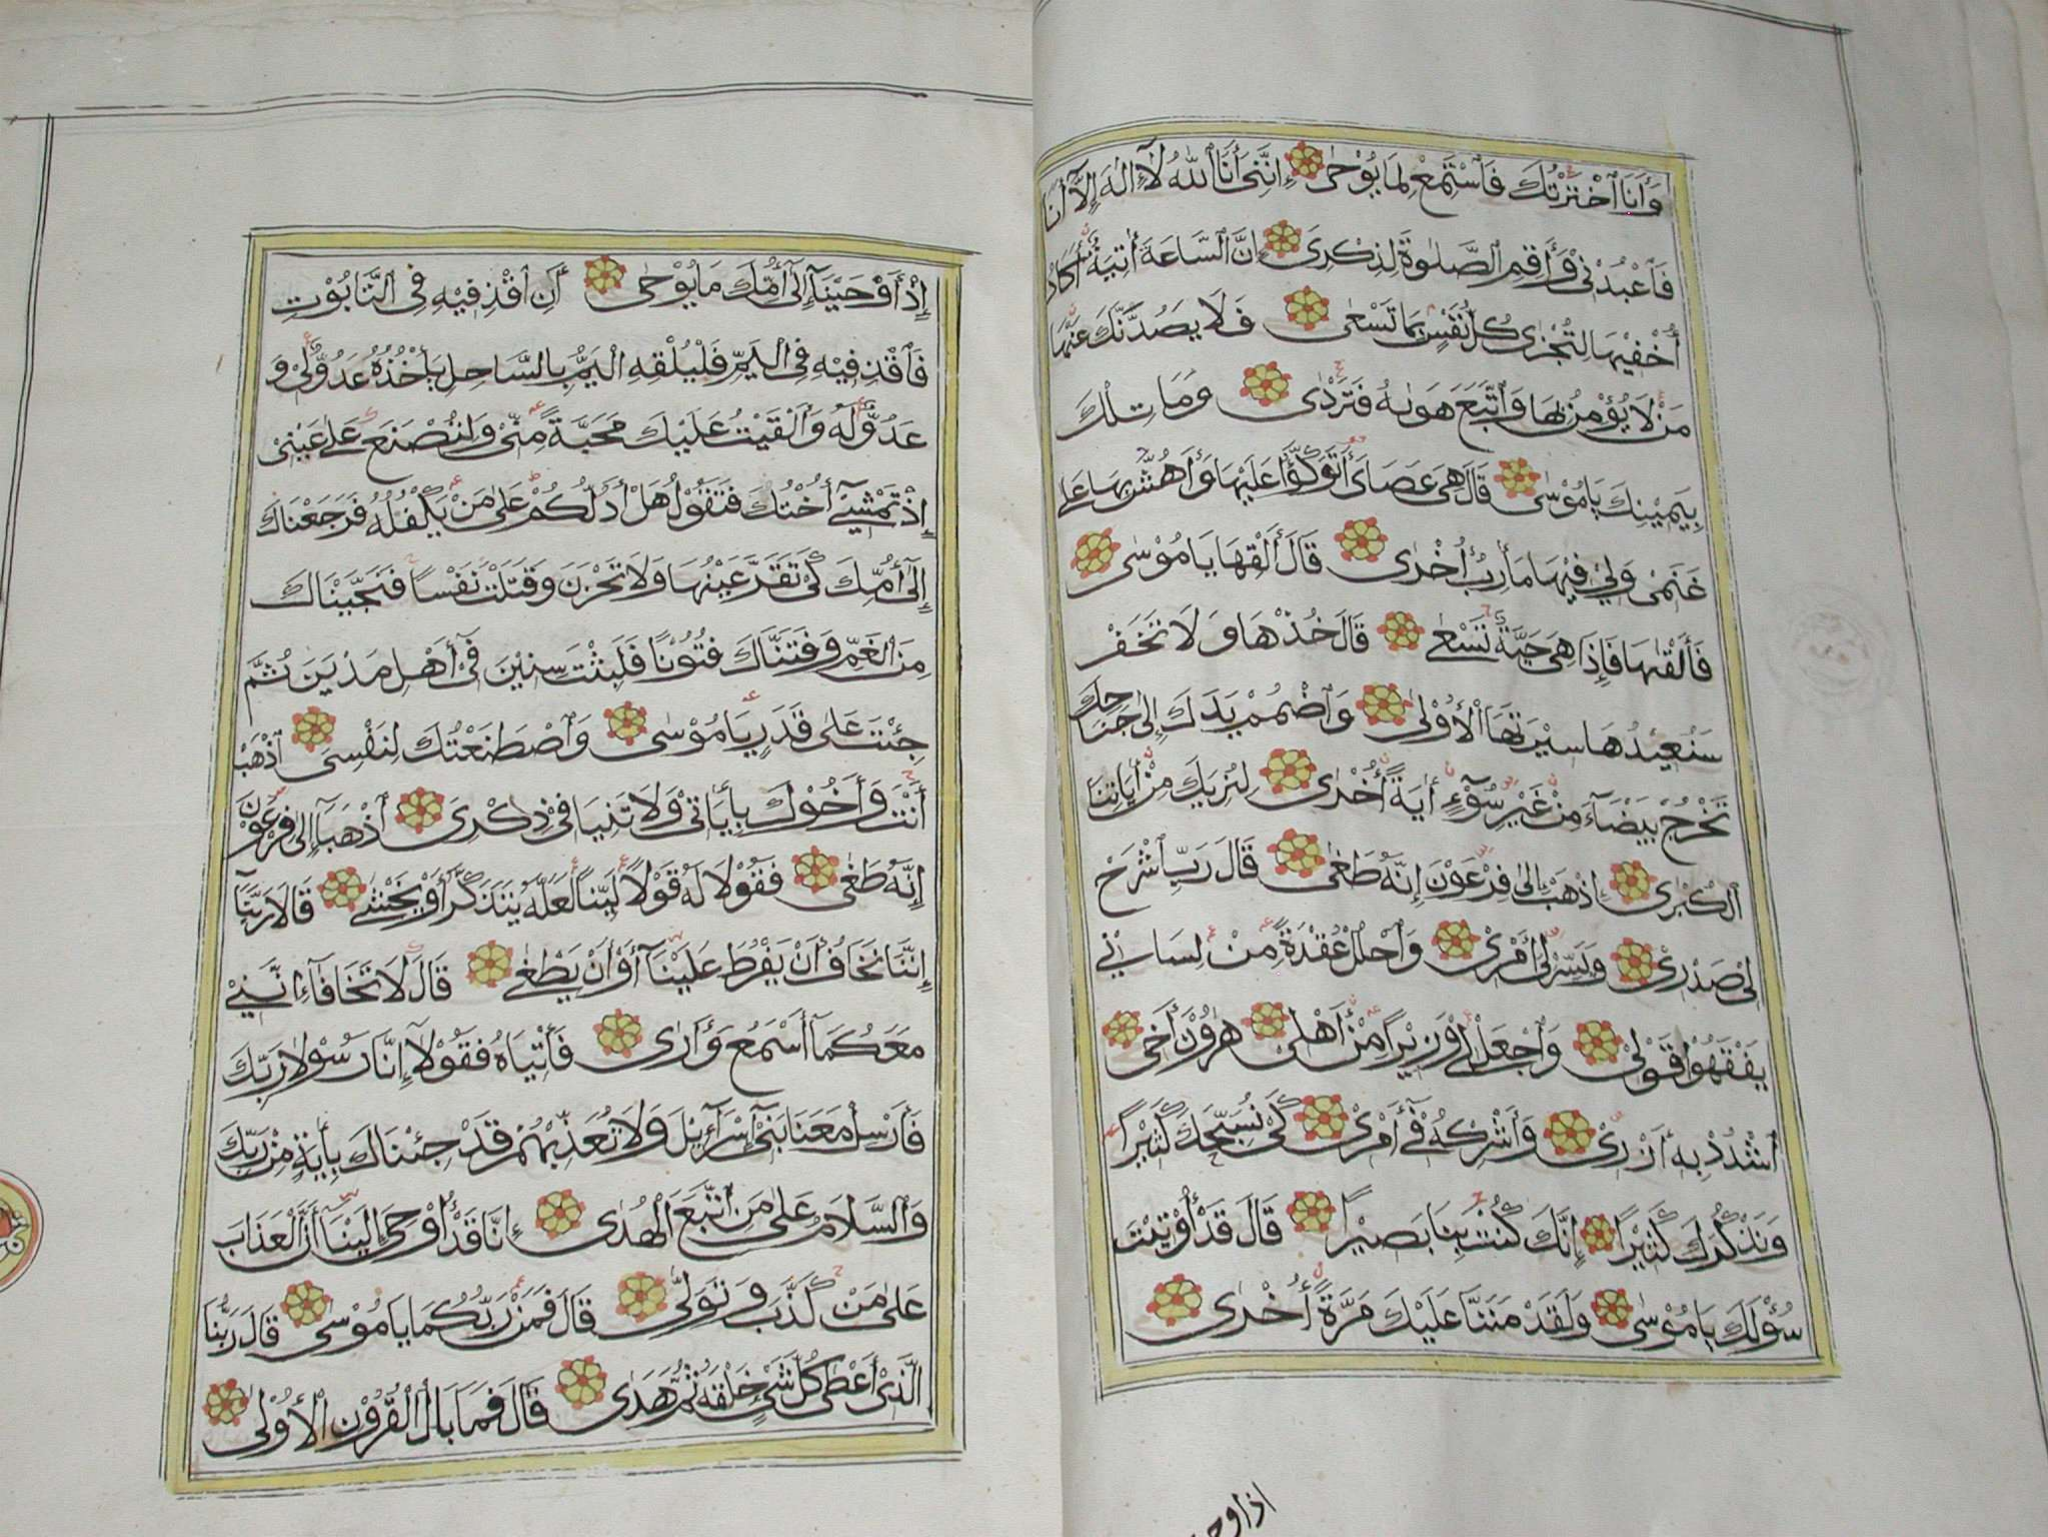 وَأَنَا ٱخْتَرْتُكَ فَٱسْتَمِعْ لِمَا يُوْحٰى إِنَّنِىْ أَنَا ٱللّٰهُ لَآ إِلٰهَ إِلَّآ أَنَا
فَٱعْبُدْنِىْ وَأَقِمِ ٱلصَّلٰوةَ لِذِكْرِىْ إِنَّ ٱلسَّاعَةَ أٰتِيَةٌ أَكَادُ
أُخْفِيْهَا لِتُجْزٰى كُلُّ نَفْسٍ بِمَا تَسْعٰى فَلَا يَصُدَّنَّكَ عَنْهَا
مَنْ لَا يُؤْمِنُ بِهَا وَٱتَّبَعَ هَوٰىهُ فَتَرْدٰى وَمَا تِلْكَ
بِيَمِيْنِكَ يَامُوْسٰى قَالَ هِىَ عَصَاىَ أَتَوَكَّؤُا عَلَيْهَا وَأَهُشُّ بِهَا عَلٰى
غَنَمِىْ وَلِىَ فِيْهَا مَأٰرِبُ أُخْرٰى قَالَ أَلْقِهَا يَامُوْسٰى
فَأَلْقٰىهَا فَإِذَا هِىَ حَيَّةٌ تَسْعٰى قَالَ خُذْهَا وَلَا تَخَفْ
سَنُعِيْدُهَا سِيْرَتَهَا ٱلْأُوْلٰى وَٱضْمُمْ يَدَكَ إِلٰى جَنَاحِكَ
تَخْرُجْ بَيْضَآءَ مِنْ غَيْرِ سُوْٓءٍ أٰيَةً أُخْرٰى لِنُرِيَكَ مِنْ أٰيَاتِنَا
ٱلْكُبْرٰى إِذْهَبْ إِلٰى فِرْعَوْنَ إِنَّهُ طَغٰى قَالَ رَبِّ ٱشْرَحْ
لِىْ صَدْرِىْ وَيَسِّرْ لِىْ أَمْرِىْ وَٱحْلُلْ عُقْدَةً مِنْ لِسَانِىْ
يَفْقَهُوْا قَوْلِىْ وَٱجْعَلْ لِىْ وَزِيْرًا مِنْ أَهْلِىْ هٰرُوْنَ أَخِى
ٱشْدُدْ بِهِ أَزْرِىْ وَأَشْرِكْهُ فِىْٓ أَمْرِىْ كَىْ نُسَبِّحَكَ كَثِيْرًا
وَنَذْكُرَكَ كَثِيْرًا إِنَّكَ كُنْتَ بِنَا بَصِيْرًا قَالَ قَدْ أُوْتِيْتَ
سُؤْلَكَ يَامُوْسٰى وَلَقَدْ مَنَنَّا عَلَيْكَ مَرَّةً أُخْرٰى
اذاوح
إِذْ أَوْحَيْنَآ إِلٰٓى أُمِّكَ مَا يُوْحٰى أَنِ ٱقْذِفِيْهِ فِى ٱلتَّابُوْتِ
فَٱقْذِفِيْهِ فِى ٱلْيَمِّ فَلْيُلْقِهِ ٱلْيَمُّ بِٱلسَّاحِلِ يَأْخُذْهُ عَدُوٌّ لِىْ وَ
عَدُوٌّ لَهُ وَأَلْقَيْتُ عَلَيْكَ مَحَبَّةً مِنِّىْ وَلِتُصْنَعَ عَلٰى عَيْنِىْ
إِذْ تَمْشِىْٓ أُخْتُكَ فَتَقُوْلُ هَلْ أَدُلُّكُمْ عَلٰى مَنْ يَكْفُلُهُ فَرَجَعْنَاكَ
إِلٰٓى أُمِّكَ كَىْ تَقَرَّ عَيْنُهَا وَلَا تَحْزَنَ وَقَتَلْتَ نَفْسًا فَنَجَّيْنَاكَ
مِنَ ٱلْغَمِّ وَفَتَنَّاكَ فُتُوْنًا فَلَبِثْتَ سِنِيْنَ فِىْٓ أَهْلِ مَدْيَنَ ثُمَّ
جِئْتَ عَلٰى قَدَرٍ يَامُوْسٰى وَٱصْطَنَعْتُكَ لِنَفْسِى ٱذْهَبْ
أَنْتَ وَأَخُوْكَ بِأٰيَاتِىْ وَلَا تَنِيَا فِىْ ذِكْرِىْ ٱذْهَبَآ إِلٰى فِرْعَوْنَ
إِنَّهُ طَغٰى فَقُوْلَا لَهُ قَوْلًا لَيِّنًا لَعَلَّهُ يَتَذَكَّرُ أَوْ يَخْشٰى قَالَا رَبَّنَآ
إِنَّنَا نَخَافُ أَنْ يَفْرُطَ عَلَيْنَآ أَوْ أَنْ يَطْغٰى قَالَ لَا تَخَافَآ إِنَّنِىْ
مَعَكُمَآ أَسْمَعُ وَأَرٰى فَأْتِيَاهُ فَقُوْلَآ إِنَّا رَسُوْلَا رَبِّكَ
فَأَرْسِلْ مَعَنَا بَنِىْٓ إِسْرَآءِيْلَ وَلَا تُعَذِّبْهُمْ قَدْ جِئْنَاكَ بِأٰيَةٍ مِنْ رَبِّكَ
وَٱلسَّلَامُ عَلٰى مَنِ ٱتَّبَعَ ٱلْهُدٰى إِنَّا قَدْ أُوْحِىَ إِلَيْنَآ أَنَّ ٱلْعَذَابَ
عَلٰى مَنْ كَذَّبَ وَتَوَلّٰى قَالَ فَمَنْ رَبُّكُمَا يَامُوْسٰى قَالَ رَبُّنَا
ٱلَّذِىْٓ أَعْطٰى كُلَّ شَىْءٍ خَلْقَهُ ثُمَّ هَدٰى قَالَ فَمَا بَالُ ٱلْقُرُوْنِ ٱلْأُوْلٰى